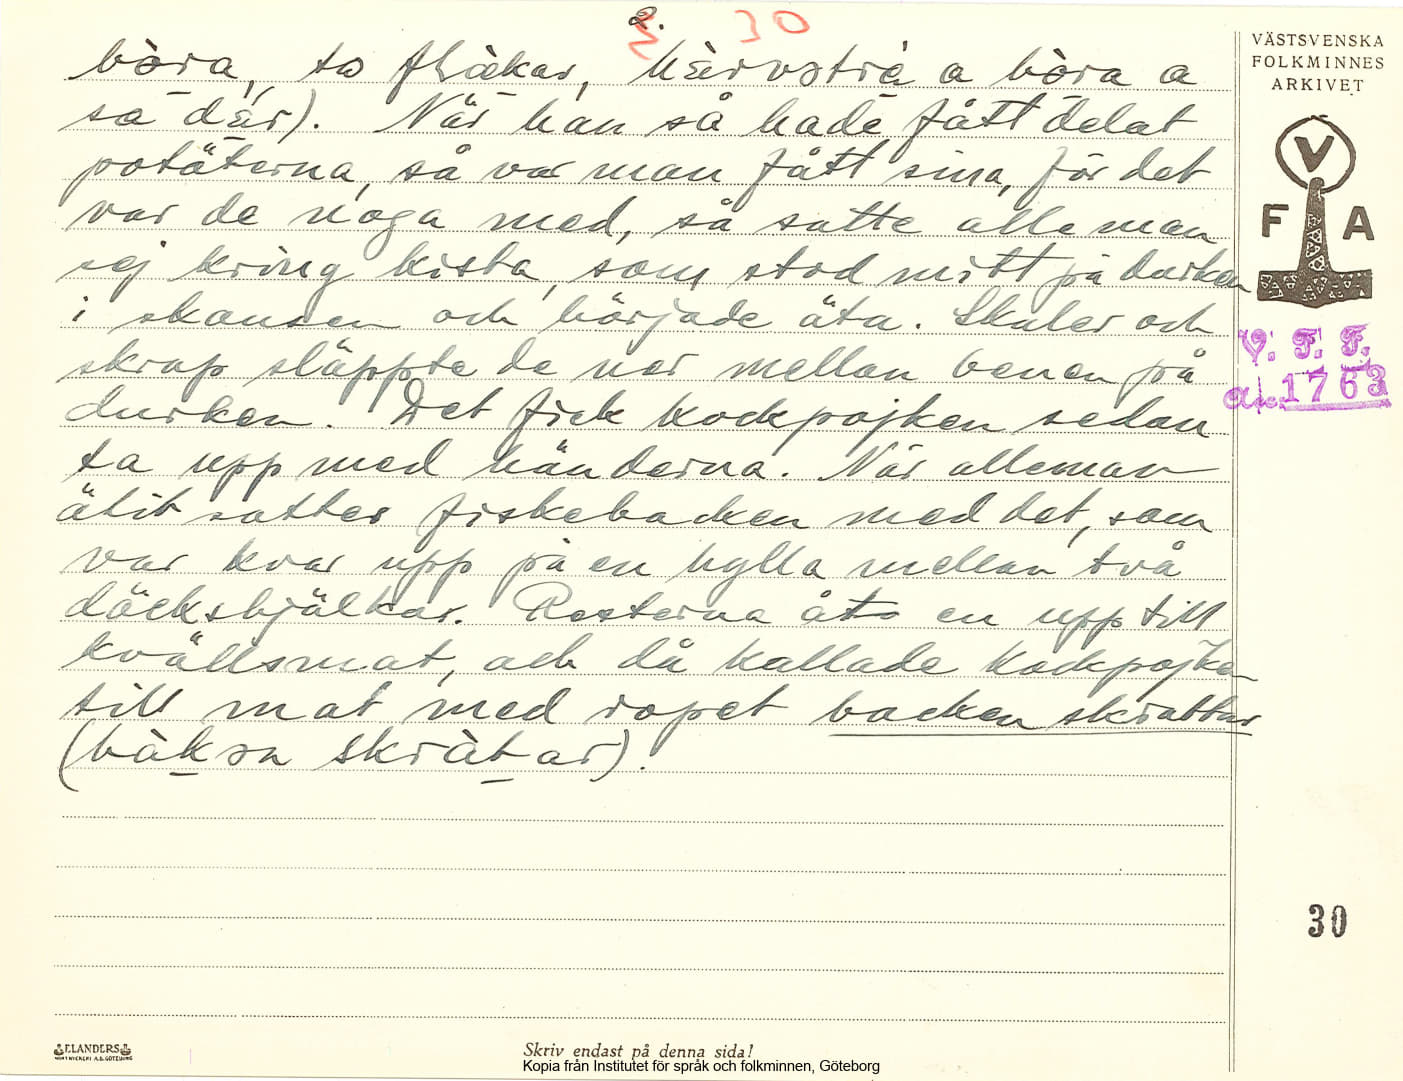 2. 30
bòra, to flàkar, hèrvətrè a bòra a
sa dèr). När han så hade fått delat
potäterna, så var man fått sina, för det
var de noga med, så satte alleman
sej kring kista, som stod mitt på durken
i skansen och började äta. Skaler och
skrap släppte de ner mellan benen på
durken. Det fick kockpojken sedan
ta upp med händerna. När alleman
ätit sattes fiskebacken med det, som
var kvar upp på en hylla mellan två
däcksbjälkar. Resterna åts en upp till
kvällsmat, och då kallade kockpojken
till mat med ropet backen skrattar
(bàkən skràtar).
VÄSTSVENSKA
FOLKMINNES
ARKIVET
V
F A
V. F. F.
1763
30
ELANDERS
Skriv endast på denna sida!
Kopia från Institutet för språk och folkminnen, Göteborg